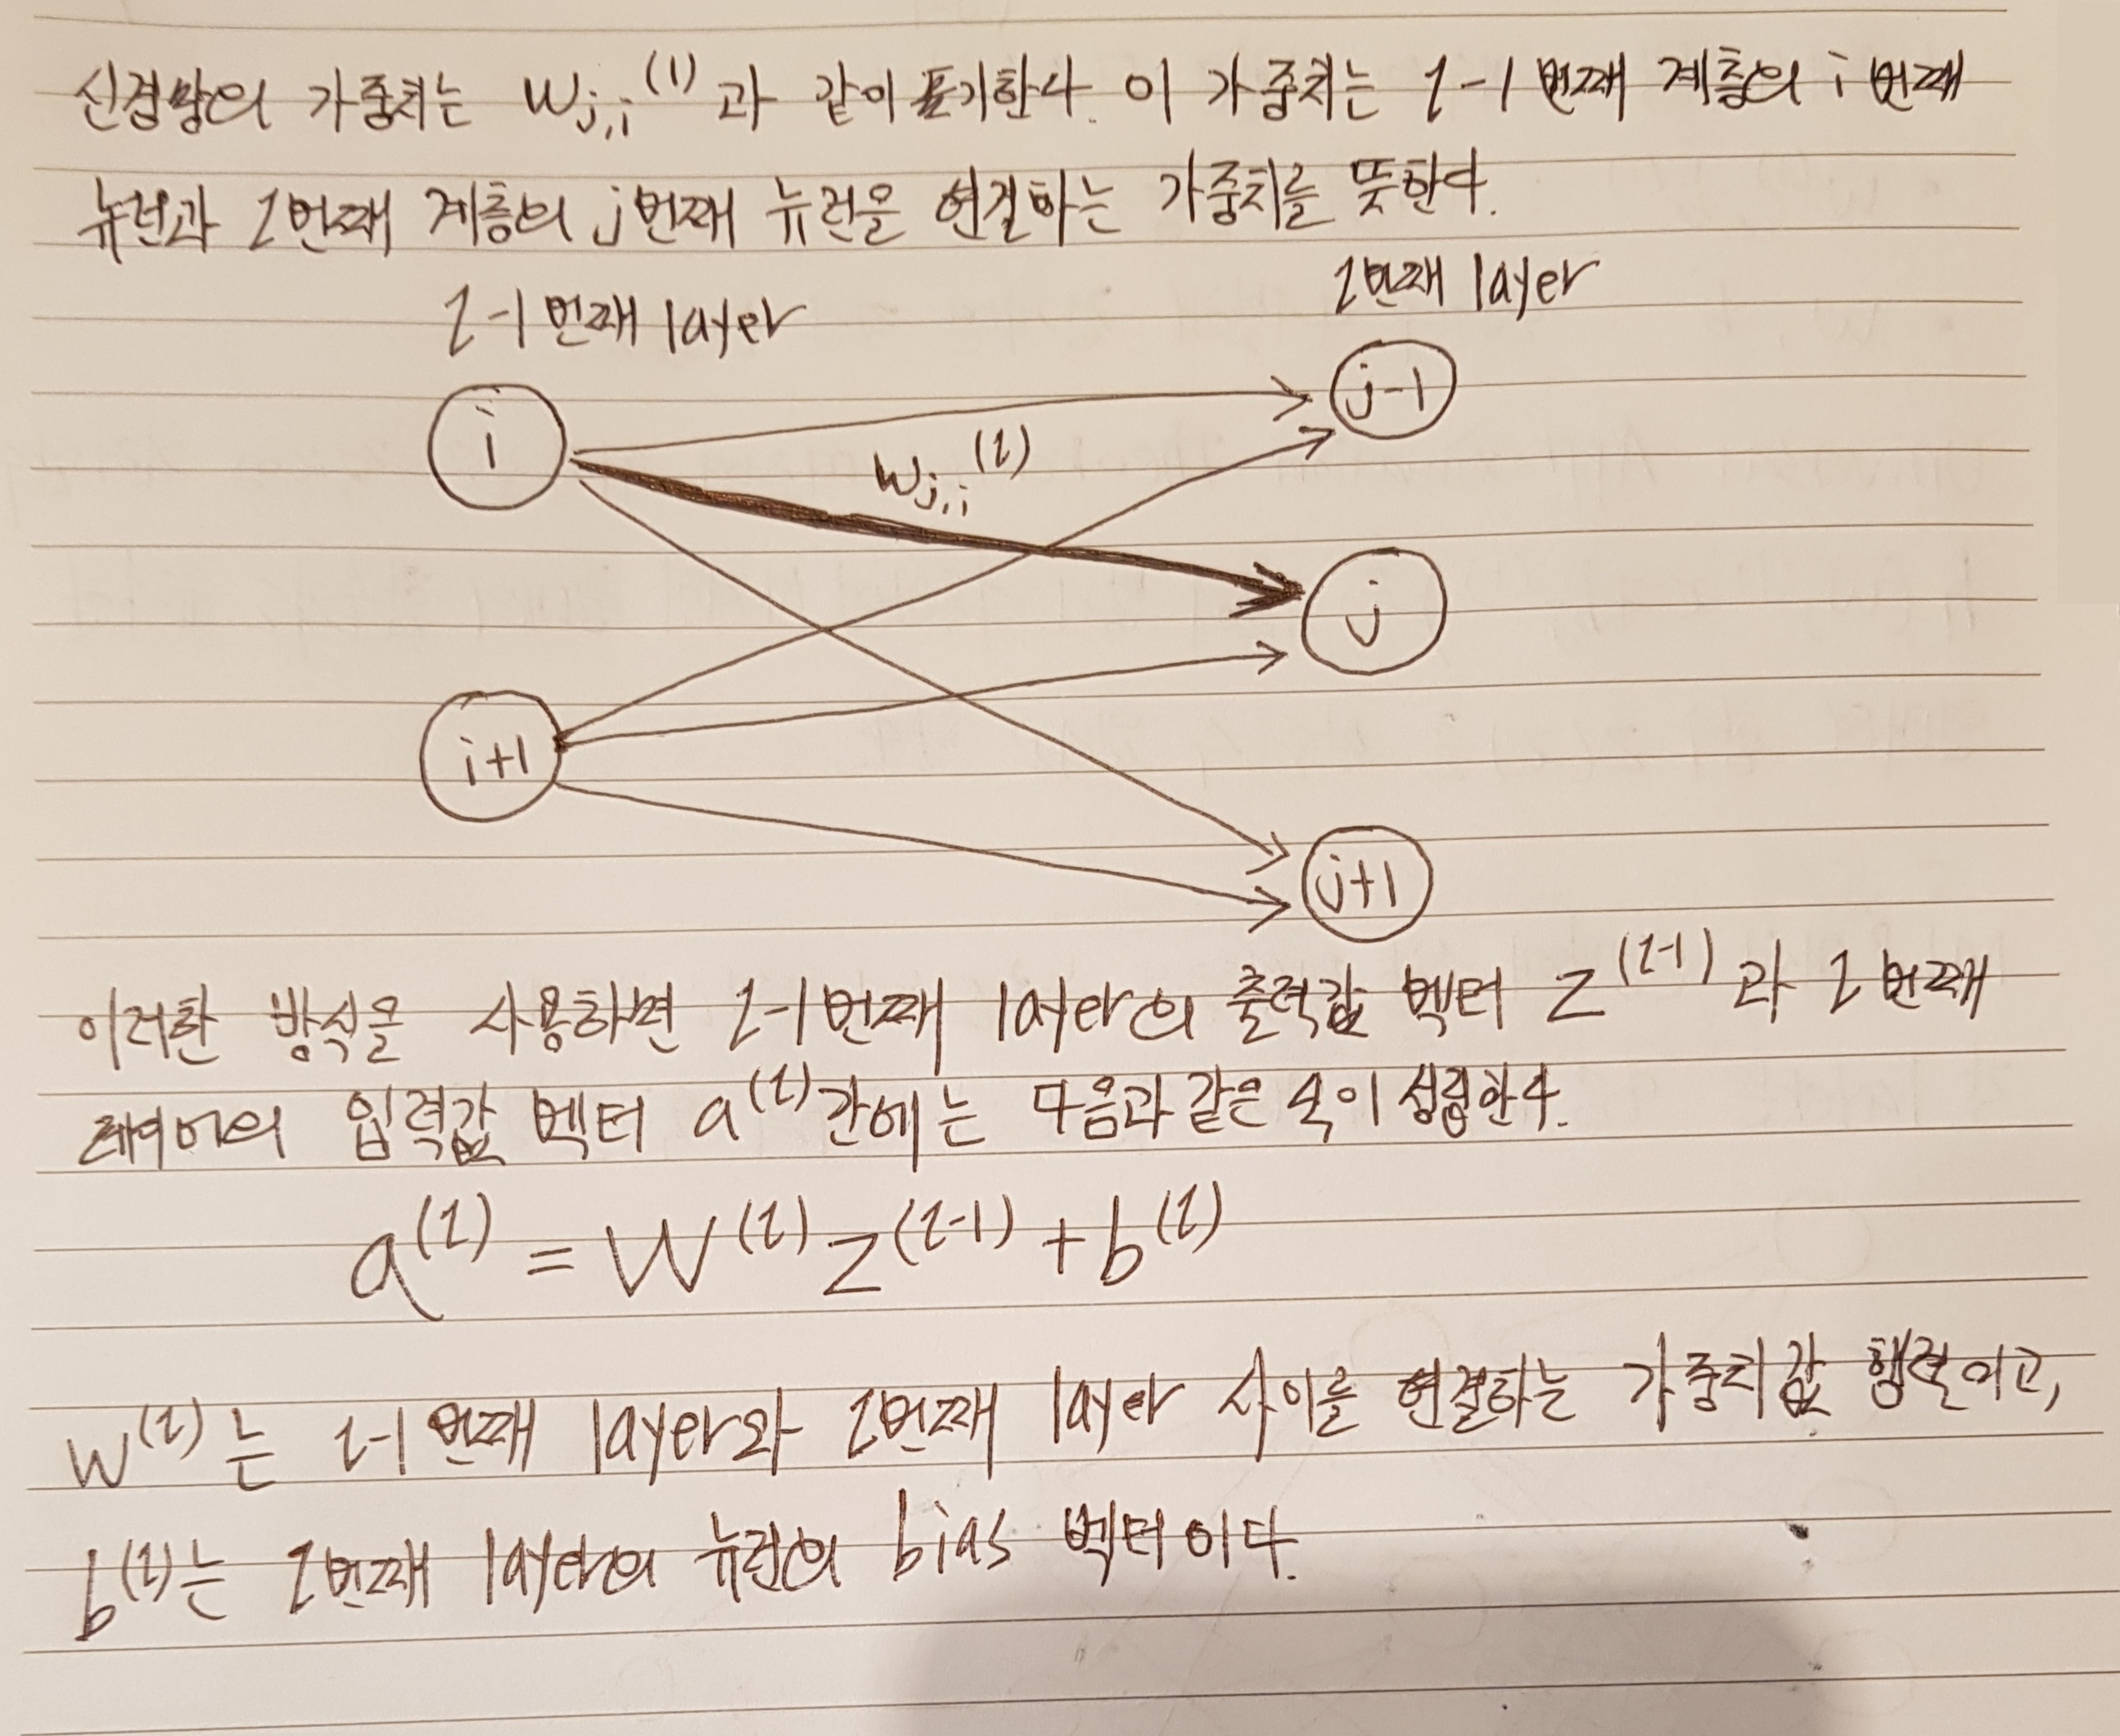 신경망의 가중치는 w_{j,i}^{(l)}과 같이 표기한다. 이 가중치는 l-1 번째 계층의 i 번째
뉴런과 l번째 계층의 j번째 뉴런을 연결하는 가중치를 뜻한다.
l-1 번째 layer
l번째 layer
i
j-1
w_{j,i}^{(l)}
j
i+1
j+1
이러한 방식을 사용하면 l-1번째 layer의 출력값 벡터 z^{(l-1)}과 l 번째
레이어의 입력값 벡터 a^{(l)}간에는 다음과 같은 식이 성립한다.
a^{(l)} = W^{(l)} z^{(l-1)} + b^{(l)}
W^{(l)}는 l-1 번째 layer와 l번째 layer 사이를 연결하는 가중치값 행렬이고,
b^{(l)}는 l번째 layer의 뉴런의 bias 벡터이다.